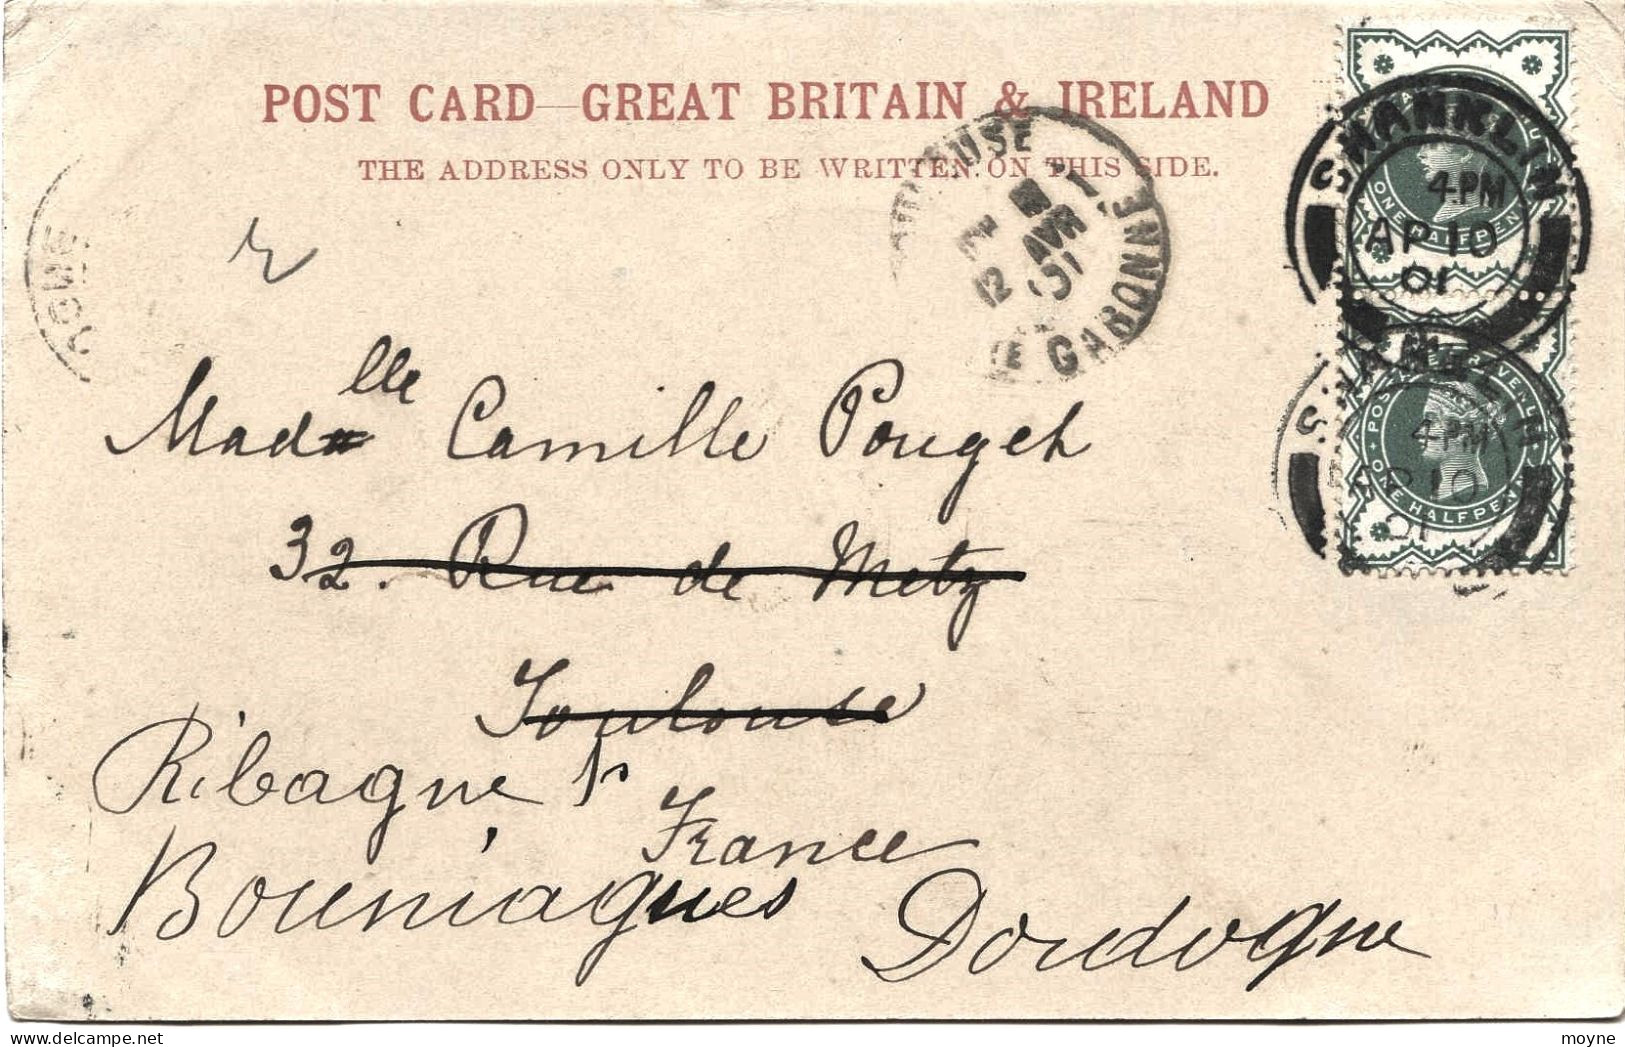 POST CARD—GREAT BRITAIN & IRELAND
THE ADDRESS ONLY TO BE WRITTEN ON THIS SIDE.
SHANKLIN
4-PM
AP 10
01
ONE HALFPENNY
SHANKLIN
4-PM
AP 10
01
POSTAGE & REVENUE
ONE HALFPENNY
12
AVR
01
GARONNE
Madlle Camille Pouget
32. Rue de Metz
Toulouse
Ribagne pr
France
Bouniagues
Dordogne
moyne